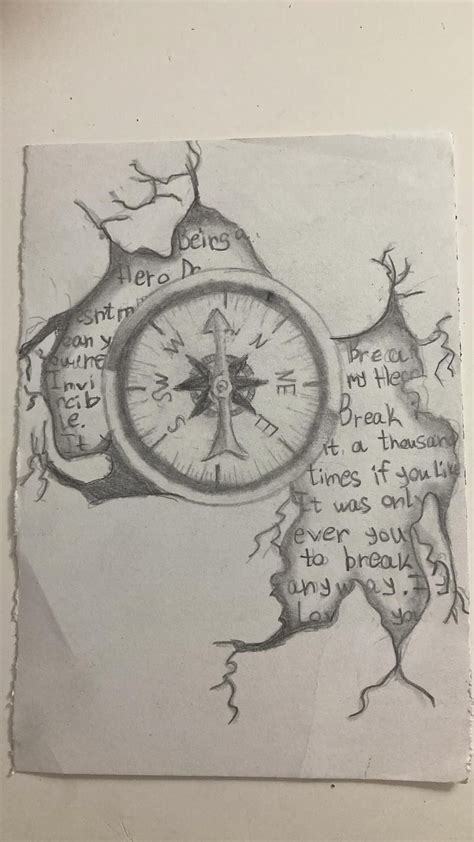 Being a
Hero Do
esnt m
ean y
Invi
ncib
le.
It y
W
N
NE
E
S
Brea
my Hea
Break
it a thousand
times if you lik
It was only
ever you
to break
anyway. I
Lov you